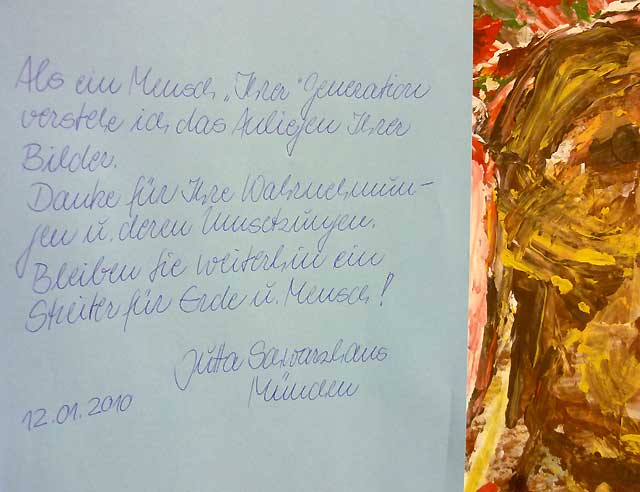 Als ein Mensch „Ihrer" Generation
verstehe ich das Anliegen Ihrer
Bilder.
Danke für Ihre Wahrnehmun-
gen u. deren Umsetzungen.
Bleiben Sie weiterhin ein
Streiter für Erde u. Mensch!
Jutta
12.01.2010